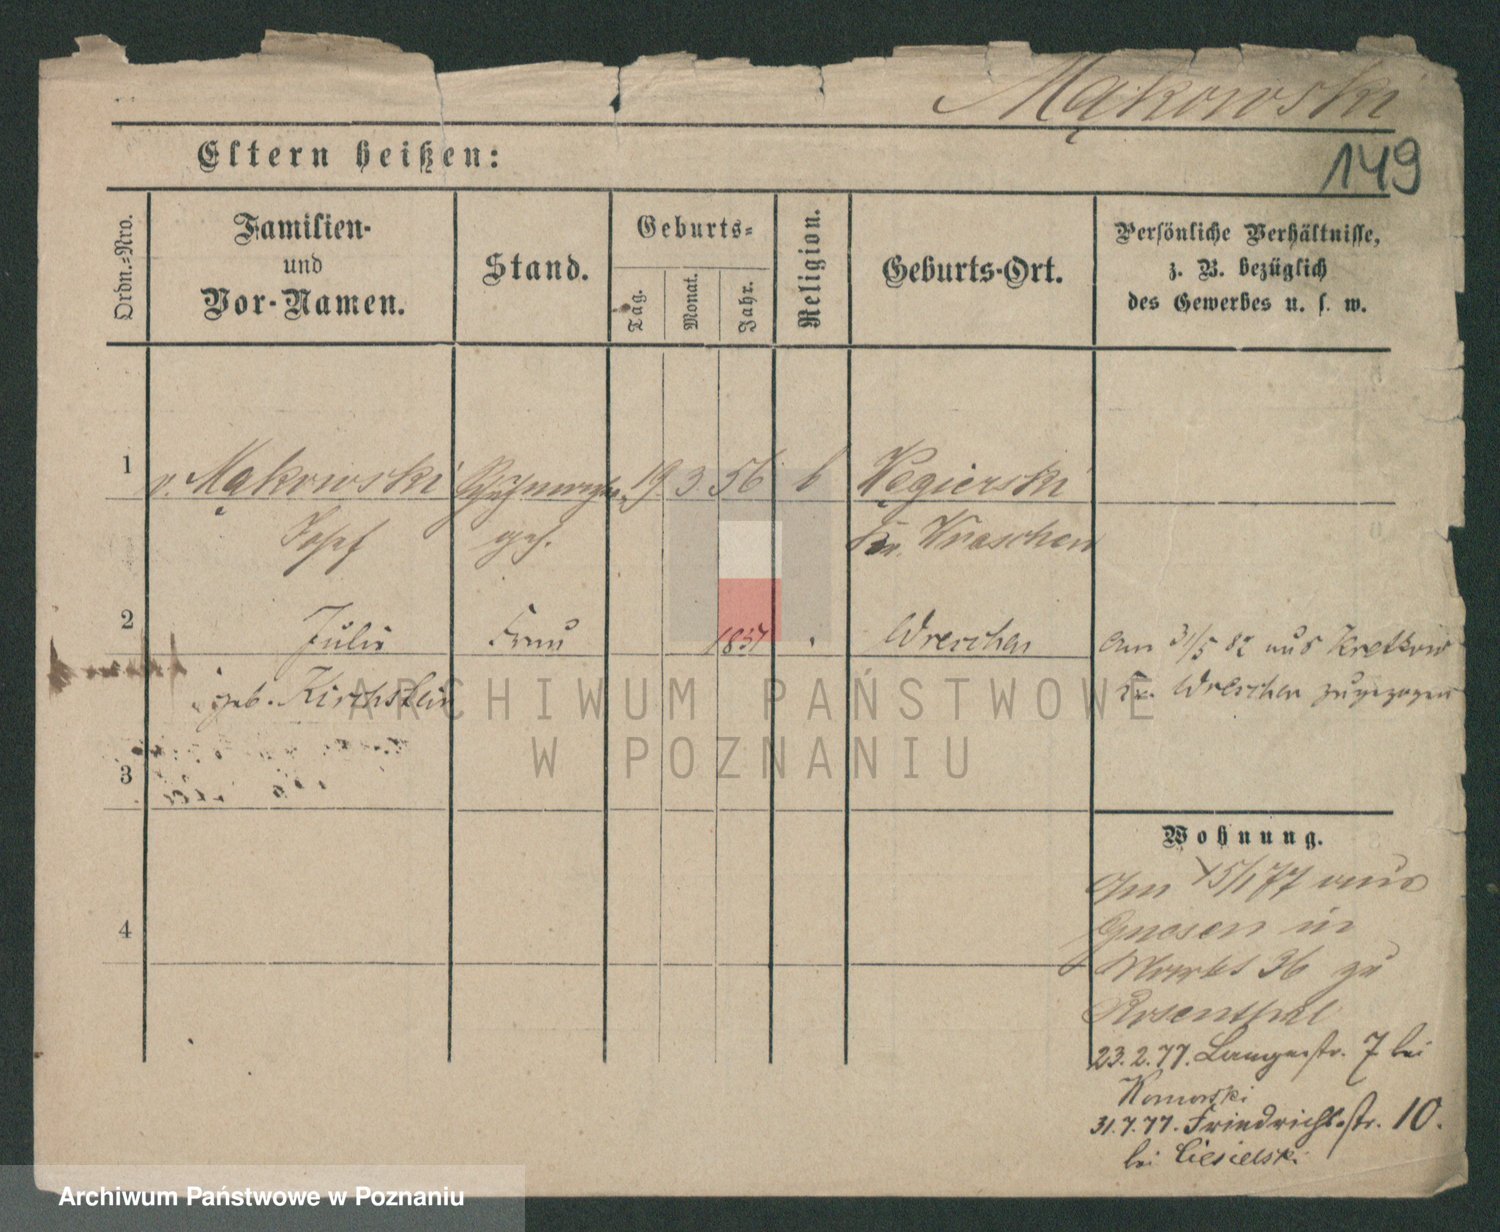 Mąkowski
149
Eltern heißen:
Ordn.-Nro.
Familien-
und
Vor-Namen.
Stand.
Geburts-
Tag.
Monat.
Jahr.
Religion.
Geburts-Ort.
Persönliche Verhältnisse,
z. B. bezüglich
des Gewerbes u. s. w.
1
v. Mąkowski
19. 3 56
Węgierski
Josef
ges.
Kr. Wreschen
2
Julie
Frau
1857
Wreschen
Am 31/5 82 aus Kretkow
geb. Kirchstein
Kr. Wreschen zugezogen
3
Wohnung.
Am 15/1 77 aus
4
Gnesen in
Markt 36 zu
Rosenthal
23.2.77. Langestr. 7 bei
Komorski
31.7.77. Friedrichstr. 10.
bei Ciesielski
ARCHIWUM PAŃSTWOWE
W POZNANIU
Archiwum Państwowe w Poznaniu